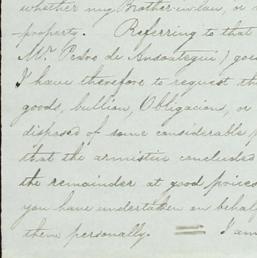 whether my Brother-in-law, or
property. Referring to that
Mr. Pedro de Ansoategui) goes
I have therefore to request th
goods, bullion, Obligacions, or
disposed of some considerable p
that the armistice concluded
the remainder at good prices
you have undertaken on behalf
them personally. I am